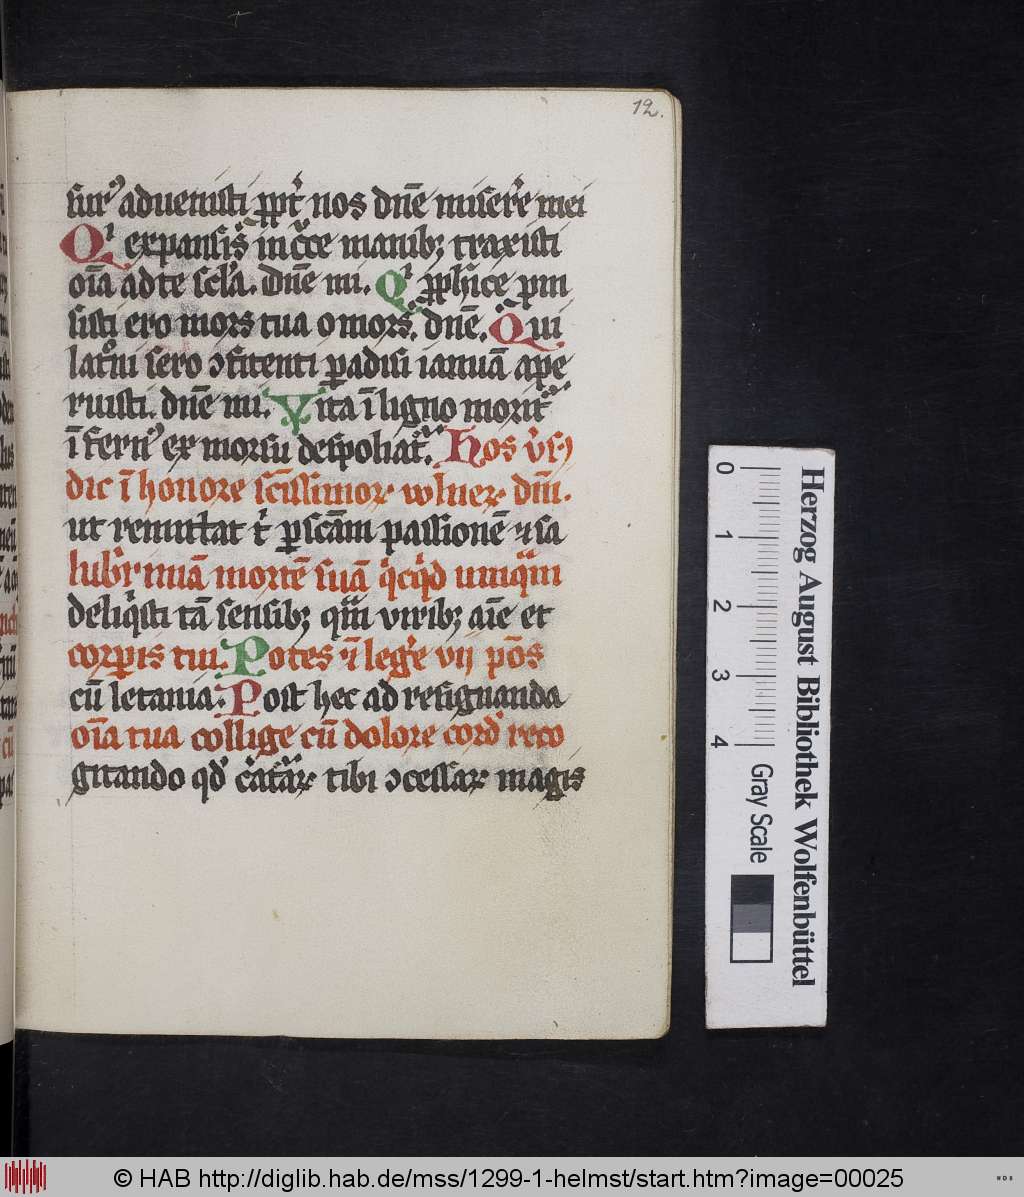 12.
surꝰ aduenisti ꝓpt̉ nos dn̄e miser̉e mei
Qⁱ expansis̉ in c̉ce manibꝫ traxisti
oīa ad te scl̉a. Dn̄e mi. Qⁱ ꝓph̉ice ꝓm
sisti ero mors tua o mors. dn̄e. Qui
lat̉ni sero ↄfitenti ꝑadisi ianuā aꝑe
ruisti. dn̄e mi. Vita ī ligno morit᷑
īfernꝰ ex morsu despoliat᷑. Hos v̉s9
dic ī honore sc̄issimoꝝ wlneꝝ dm̄.
ut remittat t̉ ꝑ scām passionē ⁊ sa
lub̉rimā mortē suā q̉cq̉d umqᷓm
deliq̉sti tā sensibꝫ qᷓm viribꝫ aīe et
corꝑis tui. Potes ⁊ leg̉e vij pōs
cū letania. Post hec ad resignanda
oīa tua collige cū dolore cord̉ reco
gitando qd̉ c̉atᷓaꝝ tibi ↄcessaꝝ magis
0 1 2 3 4
Gray Scale
Herzog August Bibliothek Wolfenbüttel
© HAB http://diglib.hab.de/mss/1299-1-helmst/start.htm?image=00025